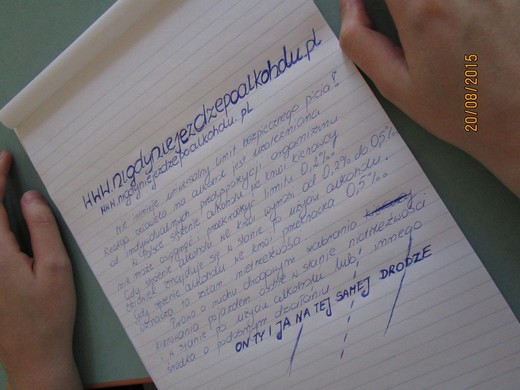 www.nigdyniejezdzepoalkoholu.pl
www.nigdyniejezdzepoalkoholu.pl
Nie istnieje uniwersalny limit bezpiecznego picia!
Reakcja człowieka na alkohol jest uzależniona
od indywidualnych predyspozycji organizmu
stężenie alkoholu we krwi kierowcy
nie może osiągnąć i przekraczać limitu 0,2‰
Gdy stężenie alkoholu we krwi wynosi od 0,2‰ do 0,5‰
znajduje się w stanie po użyciu alkoholu.
Gdy stężenie alkoholu we krwi przekracza 0,5‰
oznacza to stan nietrzeźwości
Prawo o ruchu drogowym zabrania
kierowania pojazdem osobie w stanie nietrzeźwości
w stanie po użyciu alkoholu lub innego
środka o podobnym działaniu
ON TY I JA NA TEJ SAMEJ DRODZE
20/08/2015